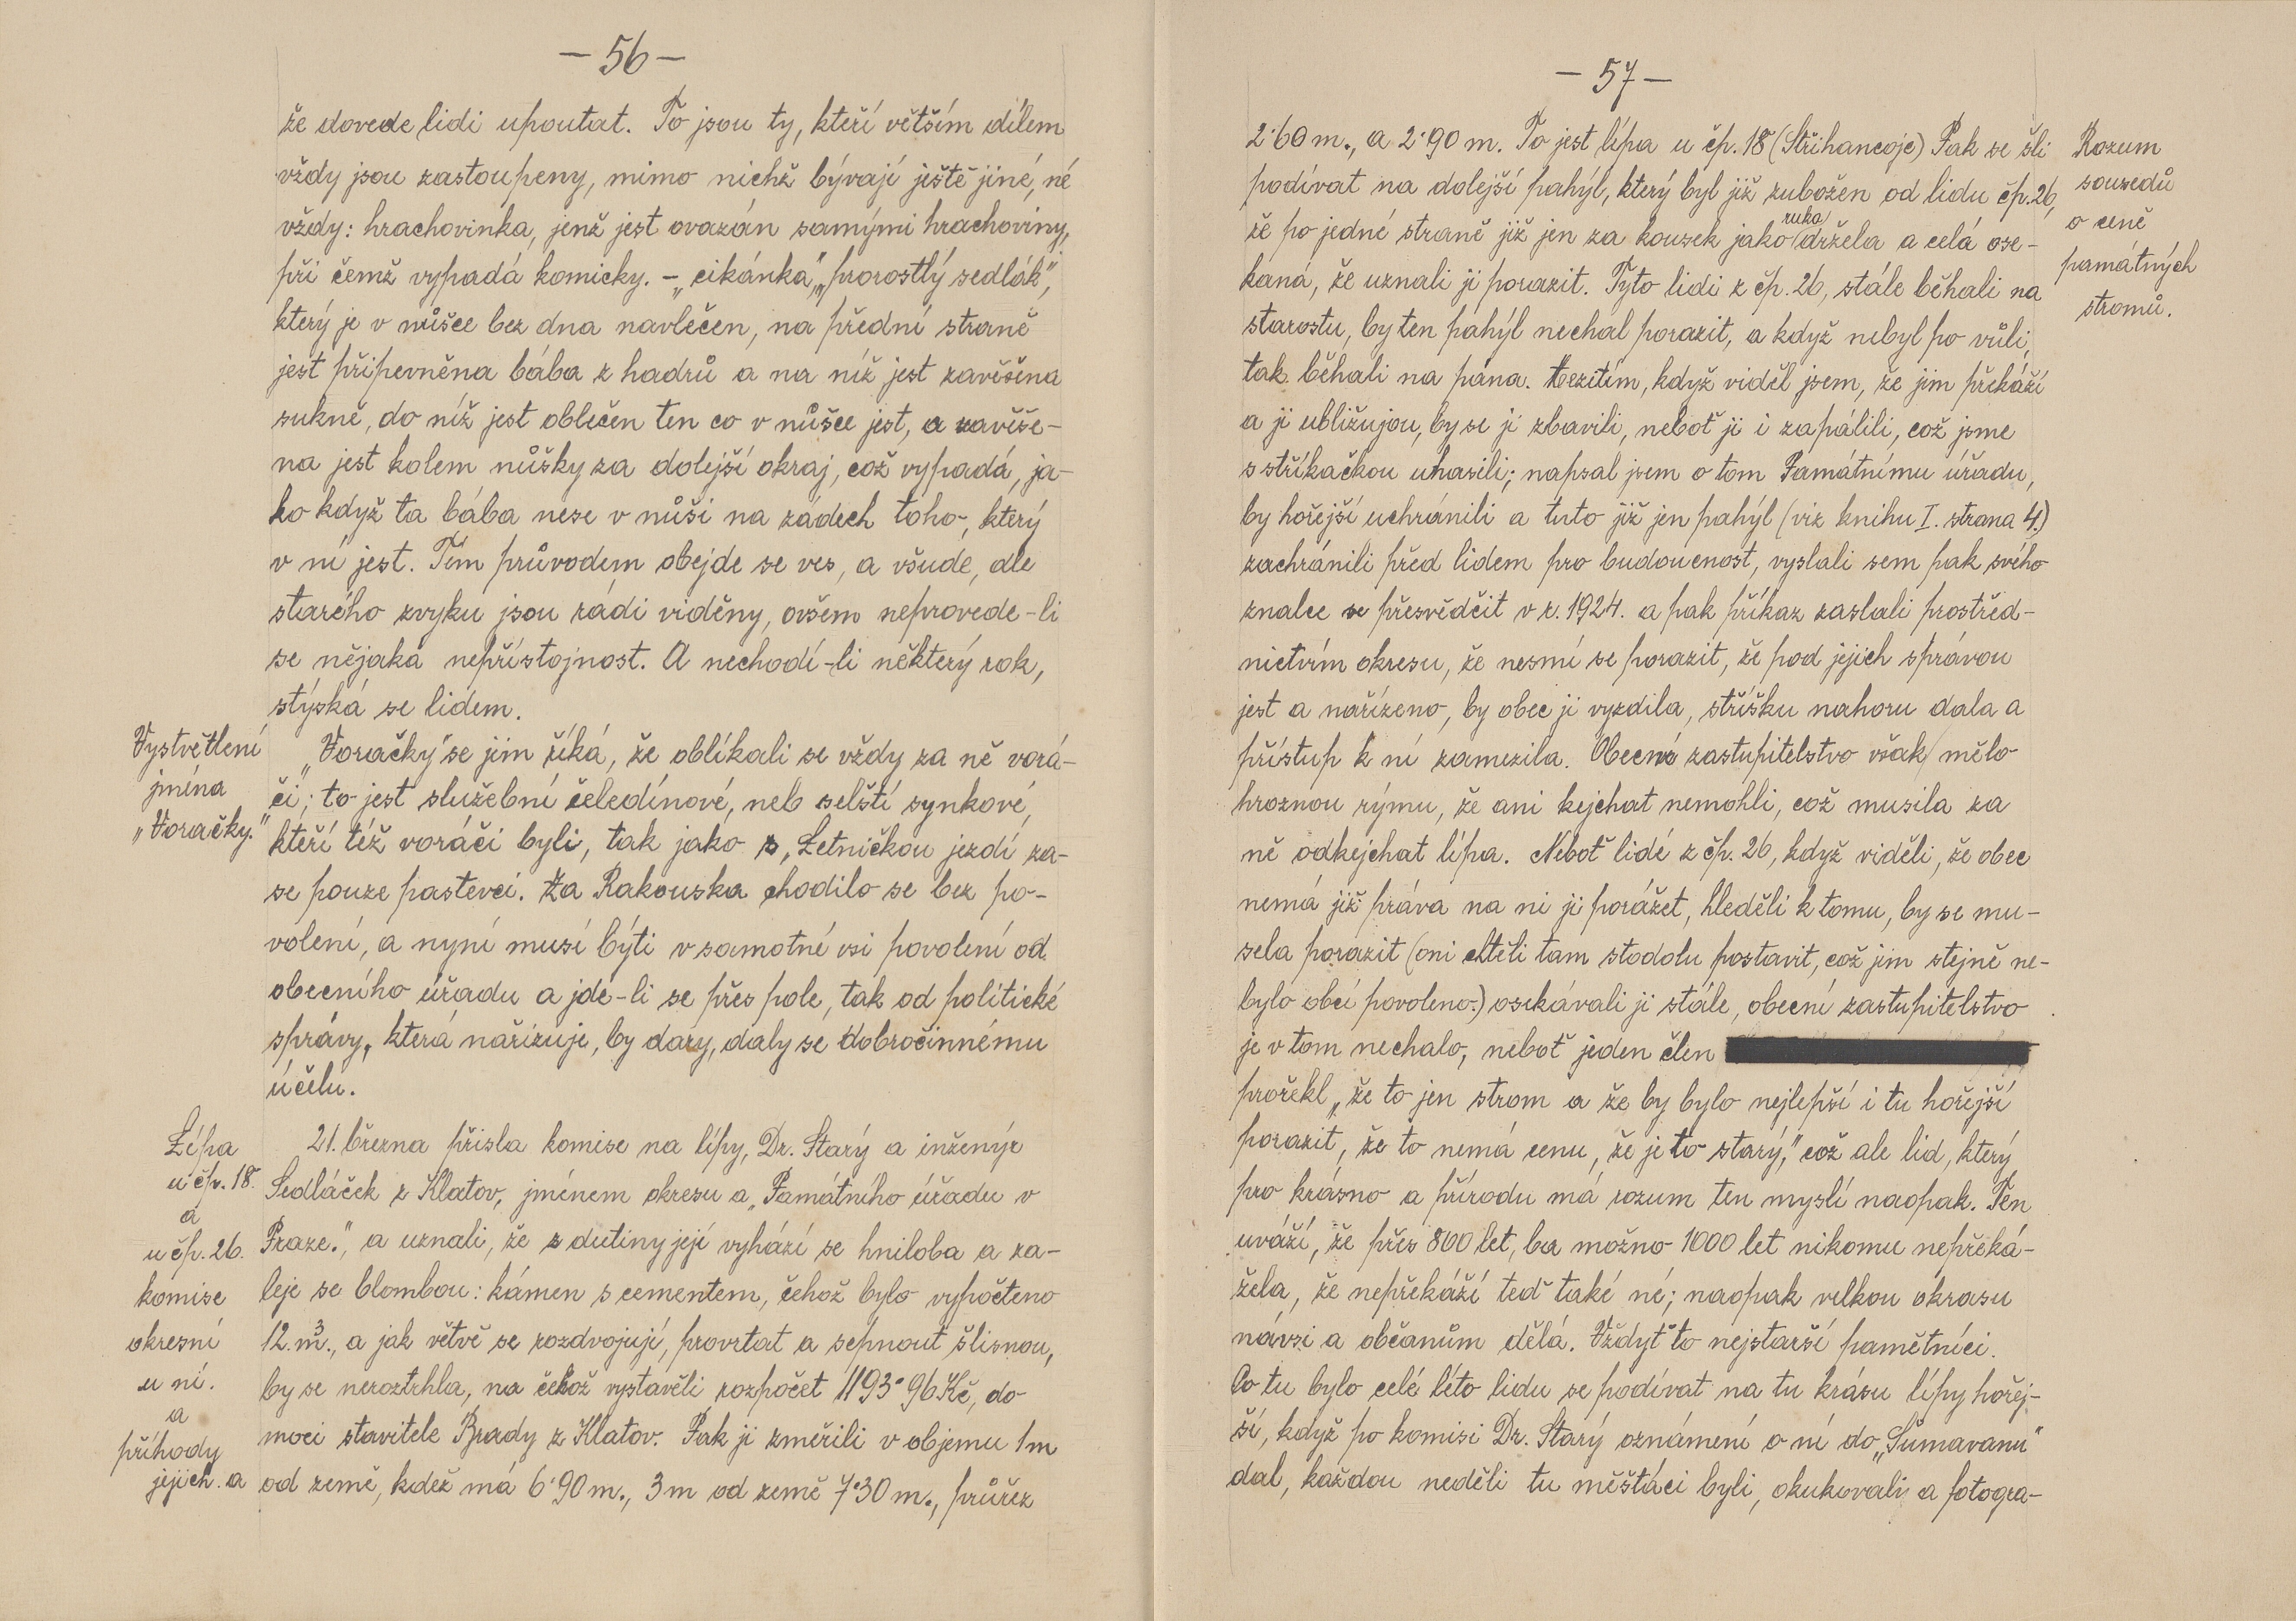 — 56 —
že dovede lidi upoutat. To jsou ty, kteří větším dílem
vždy jsou zastoupeny, mimo nichž bývají ještě jiné, né
vždy: hrachovinka, jenž jest ovazán samými hrachoviny,
při čemž vypadá komicky. – „cikánka," „prorostlý sedlák",
který je v nůšce bez dna navlečen, na přední straně
jest připevněna bába z hadrů a na níž jest zavěšena
sukně, do níž jest oblečen ten co v nůšce jest, a zavěše-
na jest kolem nůšky za dolejší okraj, což vypadá, ja-
ko když ta bába nese v nůši na zádech toho, který
v ní jest. Tím průvodem obejde se ves, a všude, dle
starého zvyku jsou rádi viděny, ovšem neprovede-li
se nějaká nepřístojnost. A nechodí-li některý rok,
stýská se lidem.
Vystvětlení
jména
„Voračky."
„Voračky" se jim říká, že oblíkali se vždy za ně vorá-
či; to jest služební čeledínové, neb selští synkové,
kteří též voráči byli, tak jako s „Letničkou jezdí za-
se pouze pastevci. Za Rakouska chodilo se bez po-
volení, a nyní musí býti v samotné vsi povolení od
obecního úřadu a jde-li se přes pole, tak od politické
správy, která nařizuje, by dary, daly se dobročinnému
účelu.
Lípa
u čp. 18.
a
u čp. 26.
komise
okresní
u ní.
a
příhody
jejich. a
21. března přisla komise na lípy, Dr. Starý a inženýr
Sedláček z Klatov, jménem okresu a „Památního úřadu v
Praze.", a uznali, že z dutiny její vyhází se hniloba a za-
leje se blombou: kámen s cementem, čehož bylo vypočteno
12. m³., a jak větvě se rozdvojují, provrtat a sepnout šlisnou,
by se neroztrhla, na čehož vystavěli rozpočet 1193·96 Kč, do
moci stavitele Brady z Klatov. Pak ji změřili v objemu 1 m
od země, kdež má 6·90 m., 3 m od země 7·30 m., průřez
— 57 —
2·60 m., a 2·90 m. To jest lípa u čp. 18 (Střihancoje) Pak se šli
podívat na dolejší pahýl, který byl již zubožen od lidu čp. 26,
že po jedné straně již jen za kousek jako ruka držela a celá ose-
kaná, že uznali ji porazit. Tyto lidi z čp. 26, stále běhali na
starostu, by ten pahýl nechal porazit, a když nebyl po vůli,
tak běhali na pána. Mezitím, když viděl jsem, že jim překáží
a ji ubližujou, by se jí zbavili, neboť ji i zapálili, což jsme
s stříkačkou uhasili; napsal jsem o tom Památnímu úřadu,
by hořejší uchránili a tuto již jen pahýl (viz knihu I. strana 4.)
zachránili před lidem pro budoucnost, vyslali sem pak svého
znalce se přesvědčit v r. 1924. a pak příkaz zaslali prostřed-
nictvím okresu, že nesmí se porazit, že pod jejich správou
jest a nařízeno, by obec ji vyzdila, stříšku nahoru dala a
přístup k ní zamezila. Obecní zastupitelstvo však mělo
hroznou rýmu, že ani kejchat nemohli, což musila za
ně odkejchat lípa. Neboť lidé z čp. 26, když viděli, že obec
nemá již práva na ni ji porážet, hleděli k tomu, by se mu-
sela porazit (oni chtěli tam stodolu postavit, což jim stejně ne-
bylo obcí povoleno.) osekávali ji stále, obecní zastupitelstvo
je v tom nechalo, neboť jeden člen
prořekl „že to jen strom a že by bylo nejlepší i tu hořejší
porazit, že to nemá cenu, že je to starý," což ale lid, který
pro krásno a přírodu má rozum ten myslí naopak. Ten
uváží, že přes 800 let, ba možno 1000 let nikomu nepřeká-
žela, že nepřekáží teď také né; naopak velkou okrasu
návsi a občanům dělá. Vždyť to nejstarší pamětníci.
Co tu bylo celé léto lidu se podívat na tu krásu lípy hořej-
ší, když po komisi Dr. Starý oznámení o ní do „Šumavanu"
dal, každou neděli tu měšťáci byli, okukovali a fotogra-
Rozum
sousedů
o ceně
památných
stromů.